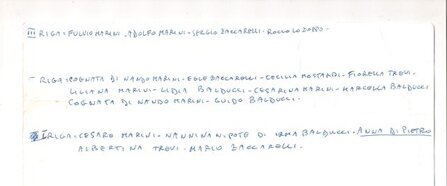 III RIGA = FULVIO MARINI - ADOLFO MARINI - SERGIO ZACCARELLI - ROCCO LO ZOPPO -
- RIGA = COGNATA DI NANDO MARINI - EGLE ZACCARELLI - CECILIA MOSTARDI - FIORELLA TREVI -
LILIANA MARINI - LIDIA BALDUCCI - CESARINA MARINI - MARCELLA BALDUCCI
COGNATA DI NANDO MARINI - GUIDO BALDUCCI -
I RIGA - CESARE MARINI - NANNINA NIPOTE DI IRMA BALDUCCI - ANNA DI PIETRO
ALBERTINA TREVI - MARIO ZACCARELLI -